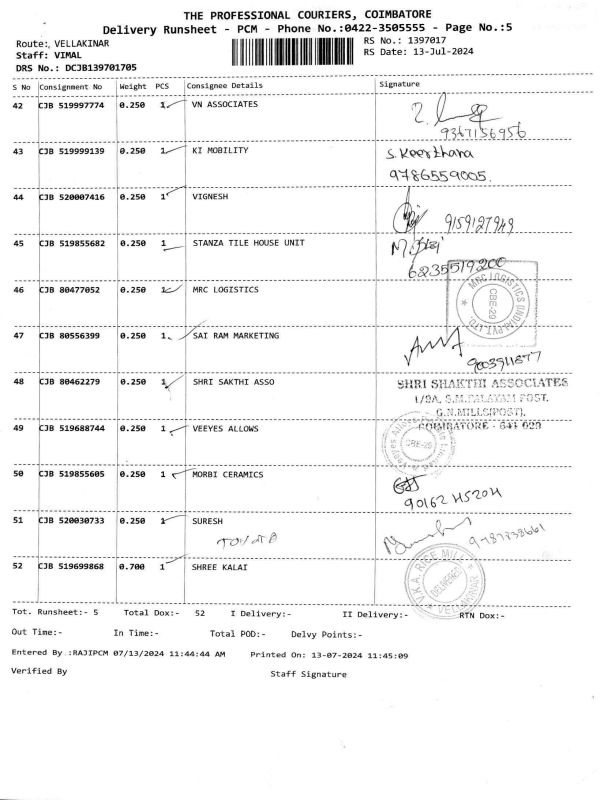 THE PROFESSIONAL COURIERS, COIMBATORE
Delivery Runsheet - PCM - Phone No.:0422-3505555 - Page No.:5
Route:, VELLAKINAR
RS No.: 1397017
Staff: VIMAL
RS Date: 13-Jul-2024
DRS No.: DCJB139701705
S No Consignment No Weight PCS Consignee Details Signature
42 CJB 519997774 0.250 1 VN ASSOCIATES
9367156956
43 CJB 519999139 0.250 1 KI MOBILITY S. Keerthana
9786559005.
44 CJB 520007416 0.250 1 VIGNESH
9159127949
45 CJB 519855682 0.250 1 STANZA TILE HOUSE UNIT
6235519200
46 CJB 80477052 0.250 1 MRC LOGISTICS
MRC LOGISTICS (INDIA) PVT. LTD. CBE-29
47 CJB 80556399 0.250 1 SAI RAM MARKETING
9003911877
48 CJB 80462279 0.250 1 SHRI SAKTHI ASSO SHRI SHAKTHI ASSOCIATES
1/2A, S.M.PALAYAM POST,
G.N.MILLS(POST),
COIMBATORE - 641 029
49 CJB 519688744 0.250 1 VEEYES ALLOWS
CBE-29
50 CJB 519855605 0.250 1 MORBI CERAMICS
90162 45204
51 CJB 520030733 0.250 1 SURESH
9787838661
52 CJB 519699868 0.700 1 SHREE KALAI
V.K.A. RICE MILL VELLAKINAR
Tot. Runsheet:- 5 Total Dox:- 52 I Delivery:- II Delivery:- RTN Dox:-
Out Time:- In Time:- Total POD:- Delvy Points:-
Entered By :RAJIPCM 07/13/2024 11:44:44 AM Printed On: 13-07-2024 11:45:09
Verified By Staff Signature